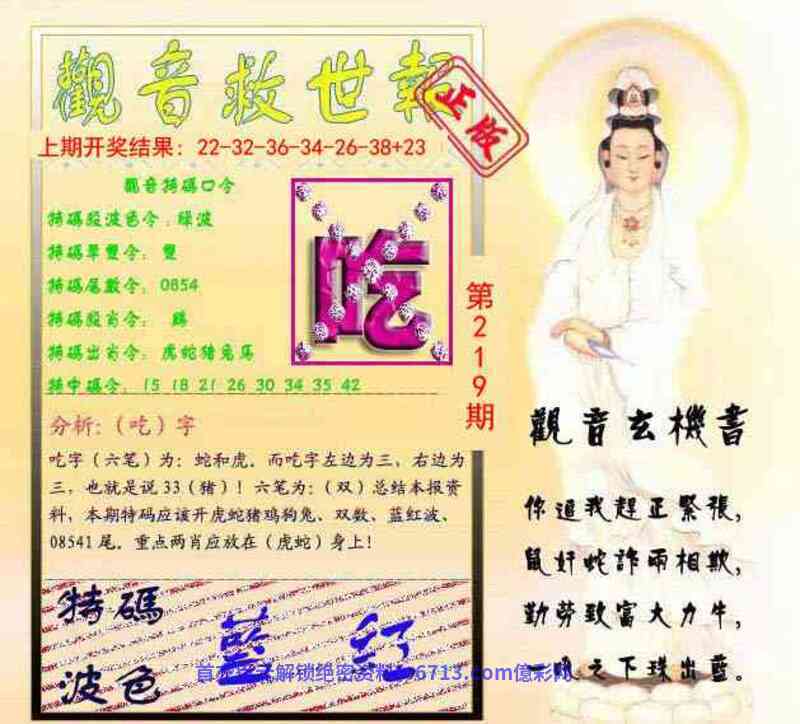 觀音救世報
正版
上期开奖结果：22-32-36-34-26-38+23
觀音特碼口令
特碼殺波色令：綠波
特碼單雙令：雙
特碼尾數令：0854
特碼殺肖令：
特碼出肖令：虎蛇豬兔馬
特中碼令：15 18 21 26 30 34 35 42
吃
第219期
分析:（吃）字
吃字（六笔）为：蛇和虎. 而吃字左边为三，右边为
三，也就是说 33（猪）！六笔为：（双）总结本报资
料，本期特码应该开虎蛇猪鸡狗兔、双数、蓝红波、
08541 尾. 重点两肖应放在（虎蛇）身上！
特碼
波色
藍 红
6713.com億彩网
觀音玄機書
你追我趕正緊張，
鼠奸蛇詐兩相欺，
勤勞致富大力牛，
一吼之下珠出藍。